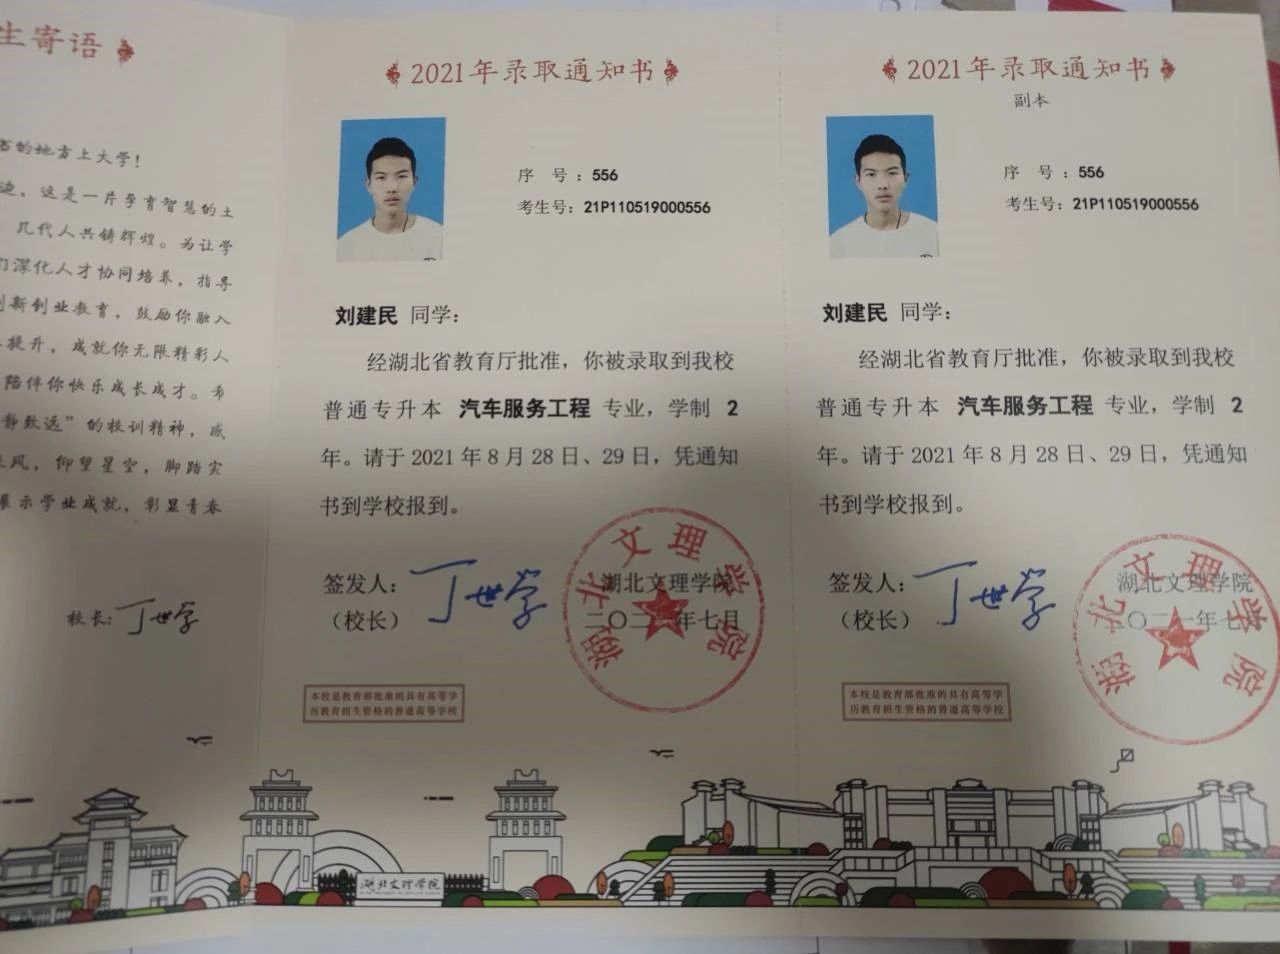 生寄语
书的地方上大学！
边，这是一片孕育智慧的土
几代人共铸辉煌。为让学
们深化人才协同培养，指导
创新创业教育，鼓励你融入
提升，成就你无限精彩人
陪伴你快乐成长成才。希
静致远”的校训精神，感
风，仰望星空，脚踏实
展示学业成就，彰显青春
校长：丁世学
2021年录取通知书
序 号：556
考生号：21P110519000556
刘建民 同学：
经湖北省教育厅批准，你被录取到我校
普通专升本 汽车服务工程 专业，学制 2
年。请于 2021 年 8 月 28 日、29 日，凭通知
书到学校报到。
签发人：丁世学
（校长）
湖北文理学院
二〇二一年七月
湖北文理学院
本校是教育部批准的具有高等学
历教育招生资格的普通高等学校
2021年录取通知书
副本
序 号：556
考生号：21P110519000556
刘建民 同学：
经湖北省教育厅批准，你被录取到我校
普通专升本 汽车服务工程 专业，学制 2
年。请于 2021 年 8 月 28 日、29 日，凭通知
书到学校报到。
签发人：丁世学
（校长）
湖北文理学院
〇二一年七
湖北文理学院
本校是教育部批准的具有高等学
历教育招生资格的普通高等学校
湖北文理学院